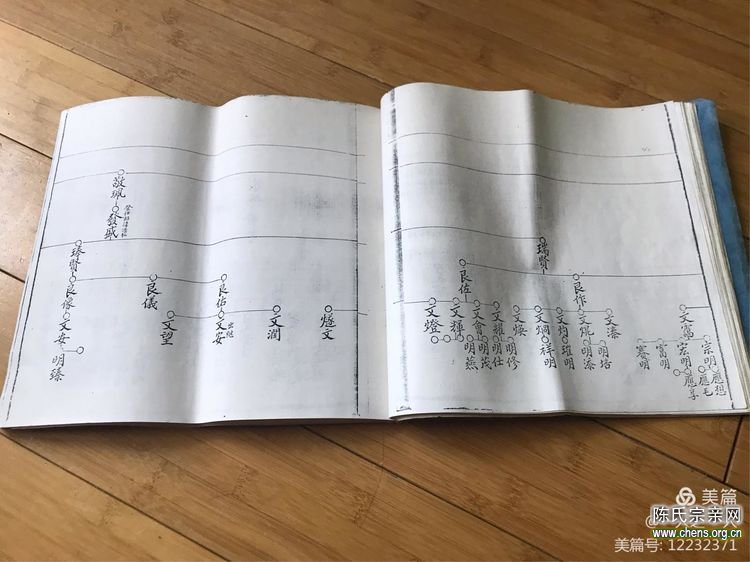 瑞賢
良作
良佐
文富
文溙
文焜
文灼
文炯
文煥
文耀
文會
文輝
文燈
宗明
宏明
富明
賽明
明培
明添
璀明
祥明
明修
明仕
明茂
明燕
應想
應毛
應享
敬珮
發盛
臻賢
良佑
良儀
良像
燧文
文潤
文安
出継
文望
文安
明臻
美篇
陈氏宗亲网
www.chens.org.cn
美篇号: 12232371